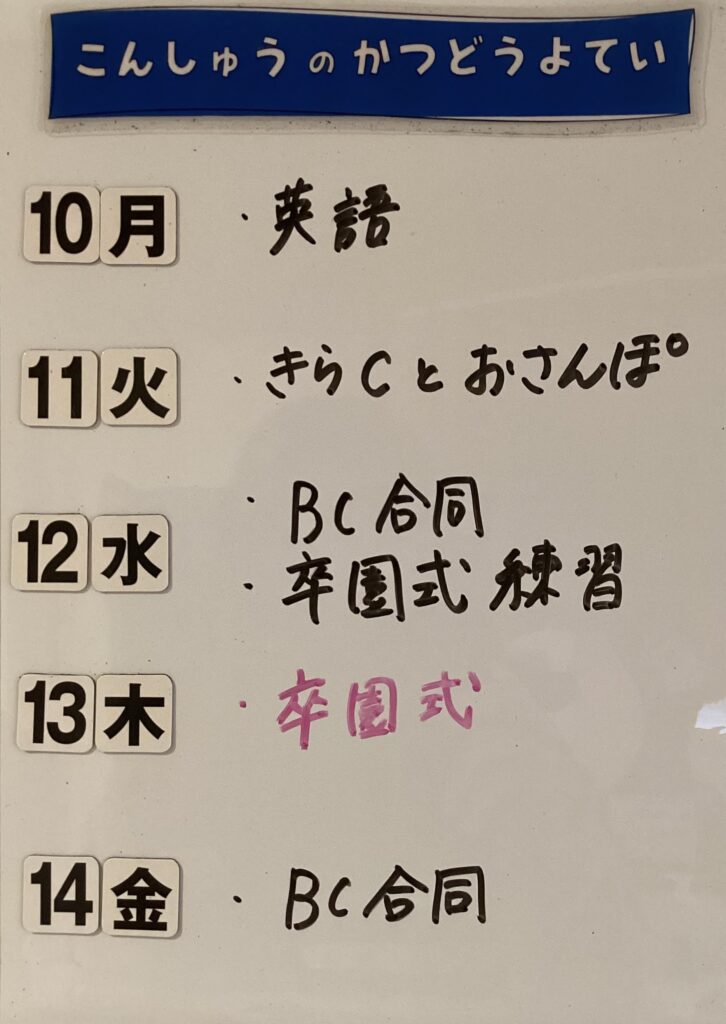 こんしゅうのかつどうよてい
10月 ・英語
11火 ・きらCとおさんぽ
12水 ・BC合同
・卒園式練習
13木 ・卒園式
14金 ・BC合同